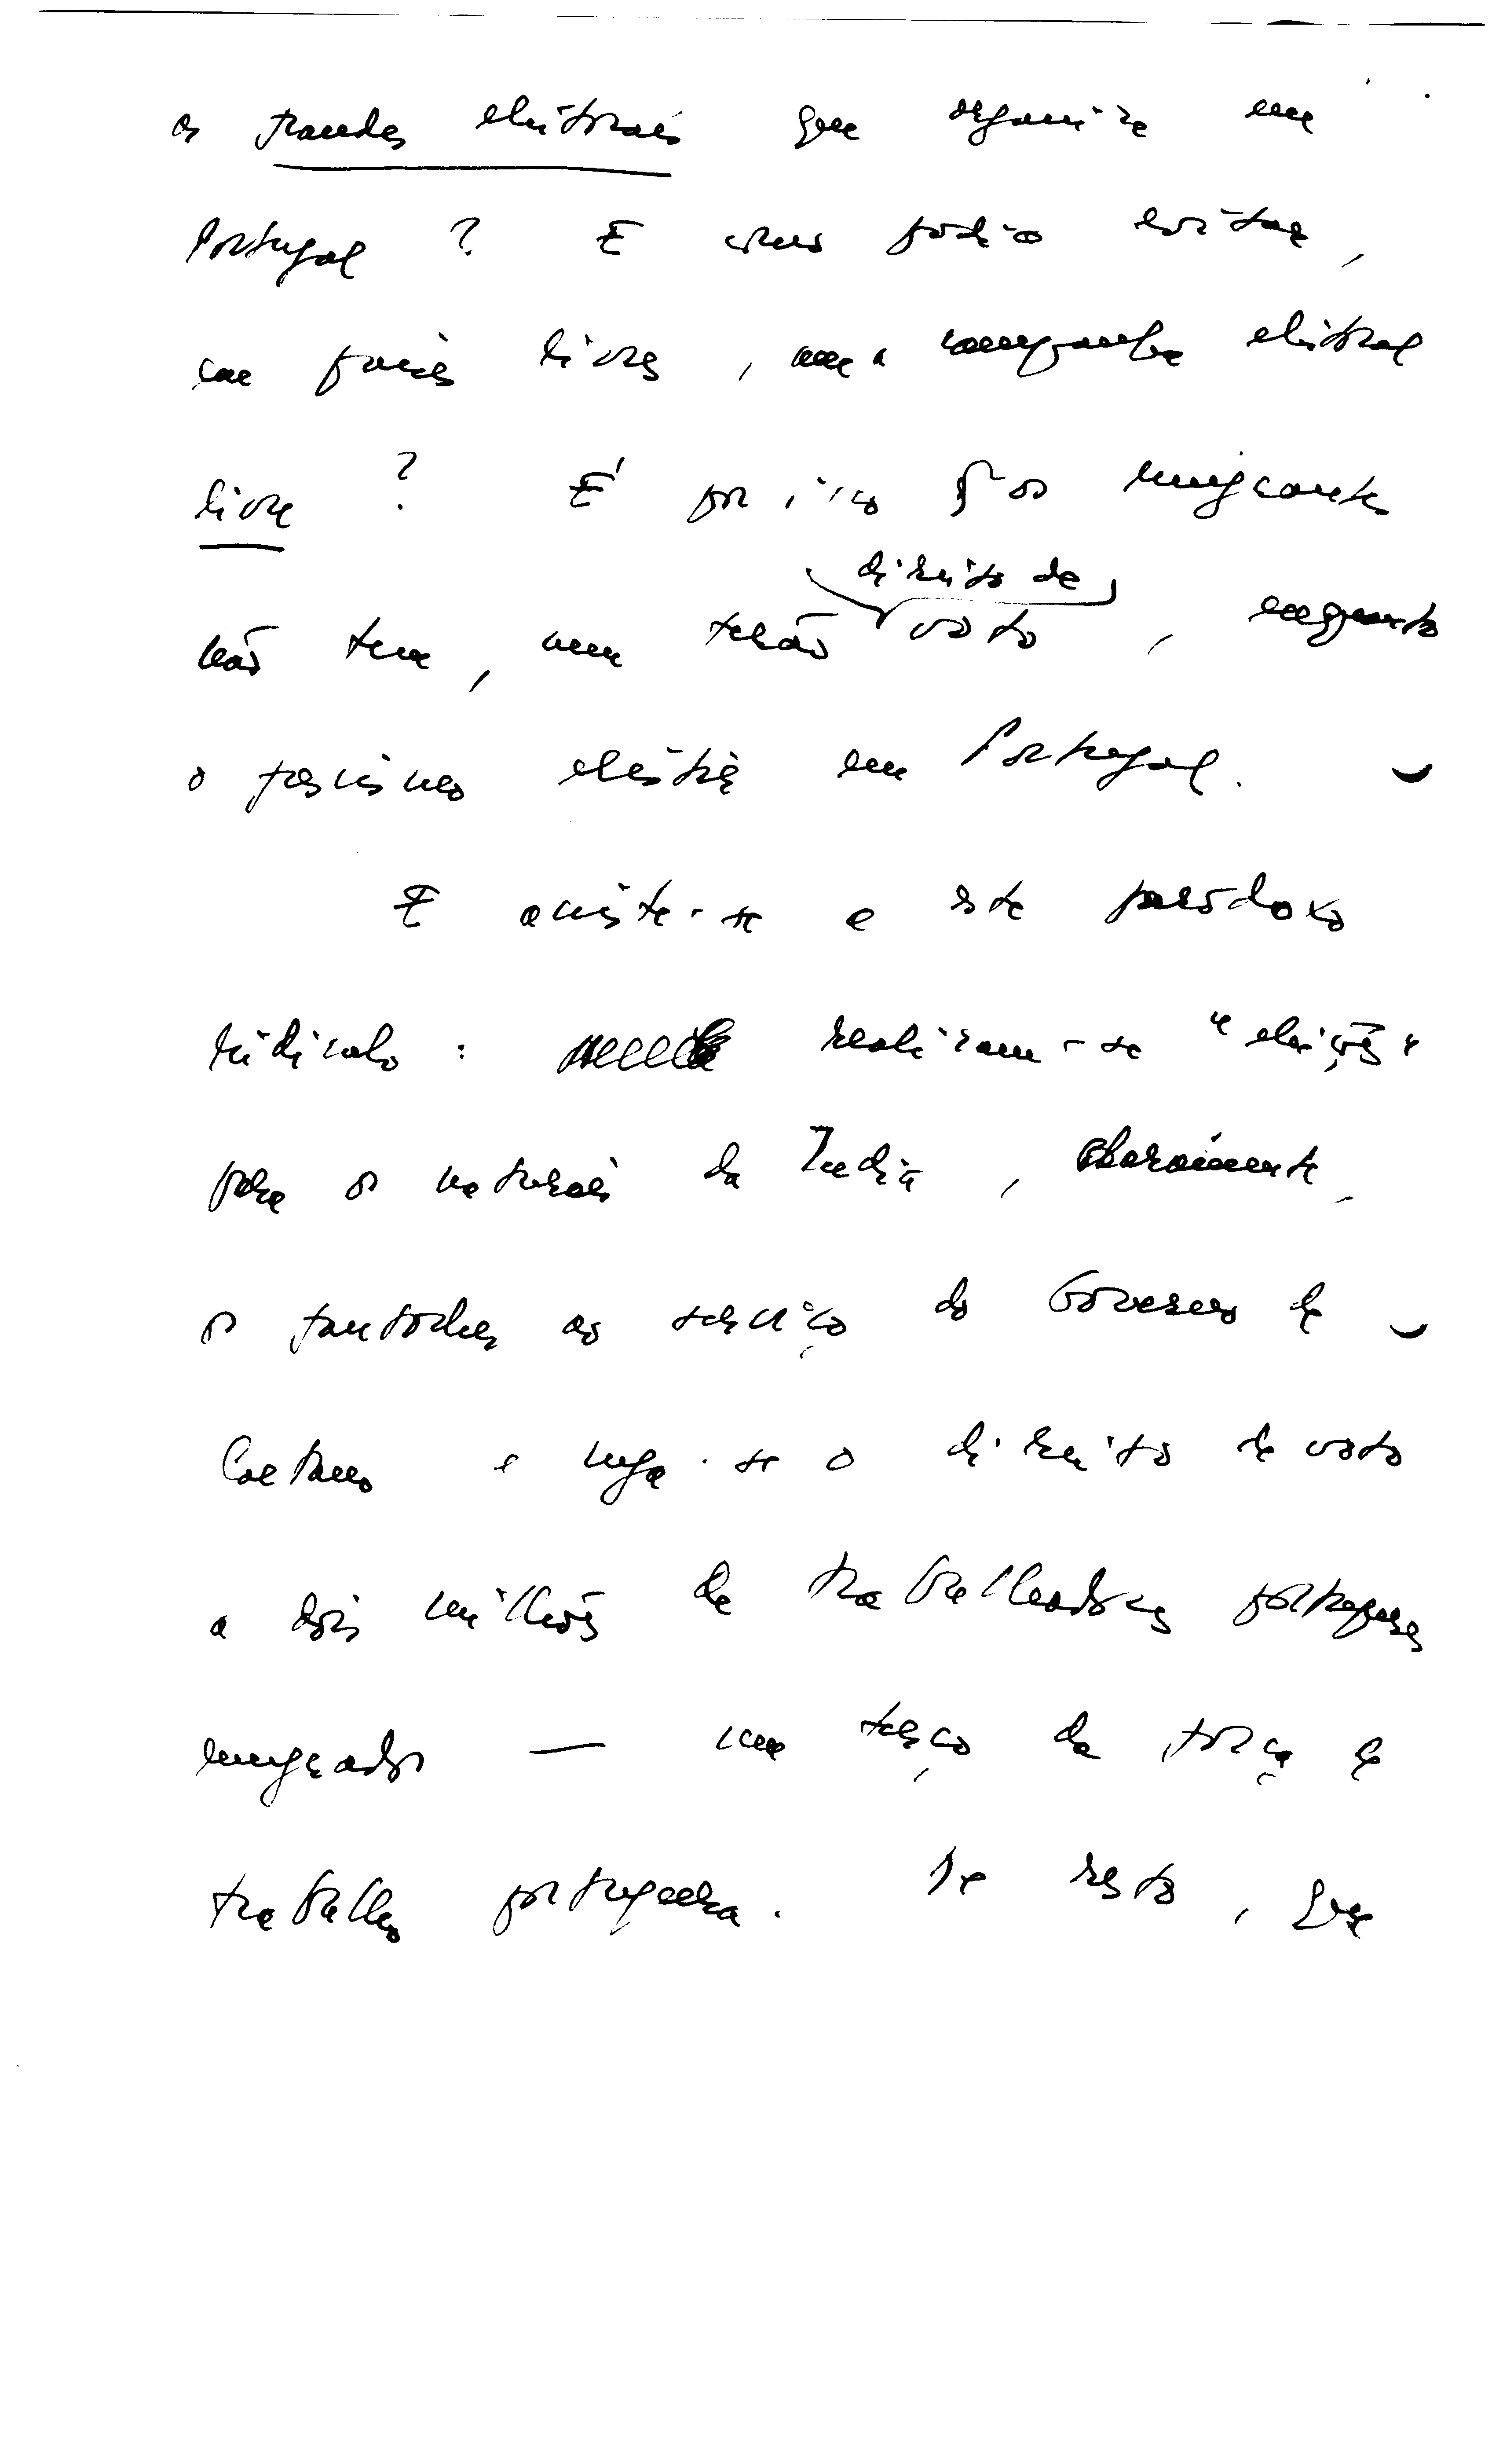 as fraudes eleitorais que organiza em
Portugal ? E como podia evitar,
em países livres, uma campanha eleitoral
livre ? É por isso q̃ os emigrantes
não tem, nem terão direito de voto, enquanto
o fascismo existir em Portugal.
E assiste-se a este paradoxo
ridículo : realizam-se "eleições"
para os naturais da India,
os fantoches ao serviço do Governo de
Caetano e nega-se o direito de voto
a dois milhões de trabalhadores portugueses
emigrados — um terço da força de
trabalho portuguesa. De resto, que